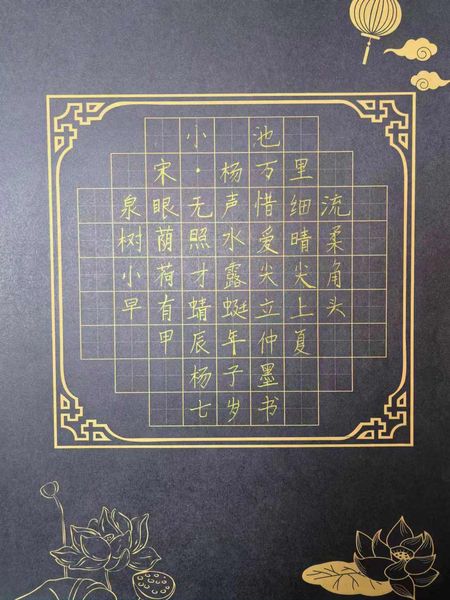 小池
宋·杨万里
泉眼无声惜细流
树荫照水爱晴柔
小荷才露尖尖角
早有蜻蜓立上头
甲辰年仲夏
杨子墨
七岁书